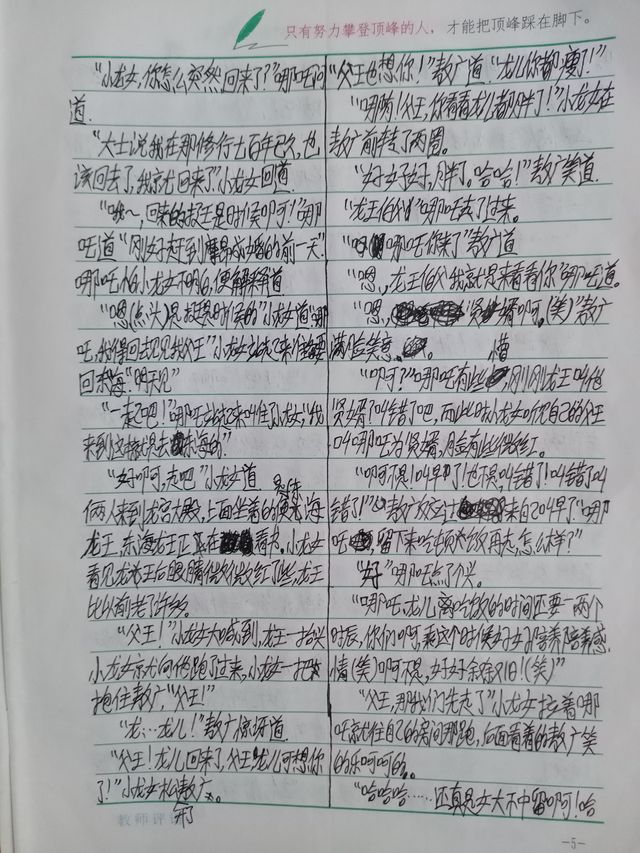 只有努力攀登顶峰的人，才能把顶峰踩在脚下。
“小龙女，你怎么突然回来了？”哪吒问
道.
“大士说我在那修行七百年已久，也
该回去了，我就回来了”小龙女回道
“哦～，回来的挺是时候啊！”哪
吒道“刚好赶到成婚的前一天”
哪吒怕小龙女不明白，便解释道
“嗯(点头)是挺是时候的”小龙女道“哪
吒，我得回去见见我父王”小龙女站起来往
回东海“明天见”
“一起吧！”哪吒站起来叫住了小龙女，“我
来到这也是去东海的”
“好啊，走吧”小龙女道
俩人来到龙宫大殿，上面坐着的便是东海
龙王，东海龙王正在看书。小龙女
看见龙王后眼睛微微红了些，龙王
比以前老了许多。
“父王！”小龙女大喊到，龙王一抬头
小龙女就向他跑了过来，小龙女一把
抱住敖广，“父王！”
“龙…龙儿！”敖广惊讶道.
“父王！龙儿回来了，父王龙儿可想你
了！”小龙女松开敖广。
教师评语
“父王也想你！”敖广道“龙儿你都瘦了！”
“哪有！父王，你看看龙儿都胖了！”小龙女在
敖广前转了两圈。
“好好好，胖了。哈哈！”敖广笑道.
“龙王伯父”哪吒走了过来。
“哪吒你来了”敖广道
“嗯，龙王伯父我就是来看看你”哪吒道。
“嗯，贤婿啊。(笑)”敖广
满脸笑意。
“啊？”哪吒有些懵，刚刚龙王叫他
贤婿？叫错了吧，而此时小龙女听见自己的父王
叫哪吒为贤婿，脸有些微红。
“啊不是！叫早了！也不是，叫错了！叫错了叫
错了！”敖广来自204早了“哪
吒，留下来吃顿饭再走，怎么样？”
“好”哪吒点了个头。
“哪吒，龙儿离吃饭的时间还要一两个
时辰，你们啊，乘这个时候好好培养培养感
情(笑)啊不是，好好余叙旧！(笑)”
“父王，那我们先走了”小龙女拉着哪
吒就往自己的房间那跑，后面看着的敖广笑
的乐呵呵的。
“哈哈哈……还真是女大不中留啊！哈
-5-